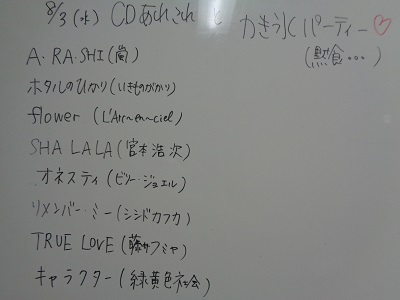 8/3(水) CDあれこれ と かき氷パーティー♡
(黙食…)
A・RA・SHI(嵐)
ホタルのひかり(いきものがかり)
flower (L'Arc~en~ciel)
SHA LA LA(宮本浩次)
オネスティ(ビリー・ジョエル)
リメンバー・ミー(シシドカフカ)
TRUE LOVE(藤井フミヤ)
キャラクター(緑黄色社会)